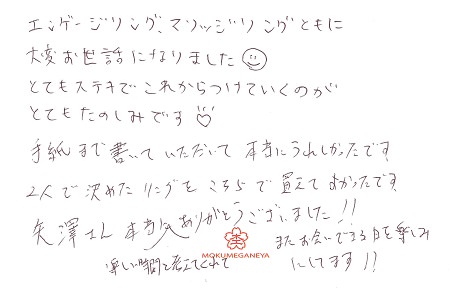 エンゲージリング、マリッジリングともに
大変お世話になりました
とてもステキでこれからつけていくのが
とてもたのしみです
手紙まで書いていただいて 本当にうれしかったです
2人で決めたリングを こちらで買えてよかったです
矢澤さん 本当にありがとうございました!!
楽しい時間を考えてくれて
MOKUMEGANEYA
またお会いできる日を楽しみ
にしてます!!